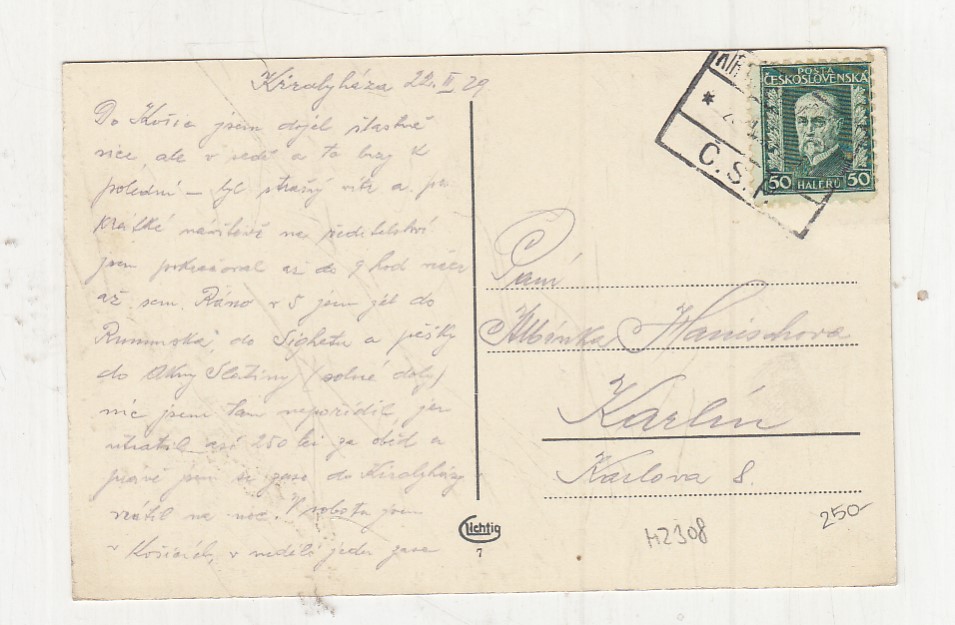 Királyháza 22. II 29
Do Košic jsem dojel šťastně
sice, ale v a to k
polední – byl strašný a po
krátké návštěvě na ředitelství
jsem pokračoval až do 9 hod večer
až sem. Ráno v 5 jsem jel do
Rumunska, do Sighetu a pěšky
do Akny Slatiny (solné doly)
nic jsem tam nepořídil, jen
utratil asi 250 lei za oběd a
právě jsem se zase do Királyházy
vrátil na noc. V sobotu jsem
v Košicích, v neděli jedu zase
POSTA
ČESKOSLOVENSKÁ
50 HALÉŘŮ 50
Č.S.
Paní
Albínka Hanischova
Karlín
Karlova 8.
Lichtig
7
HZ308
250-